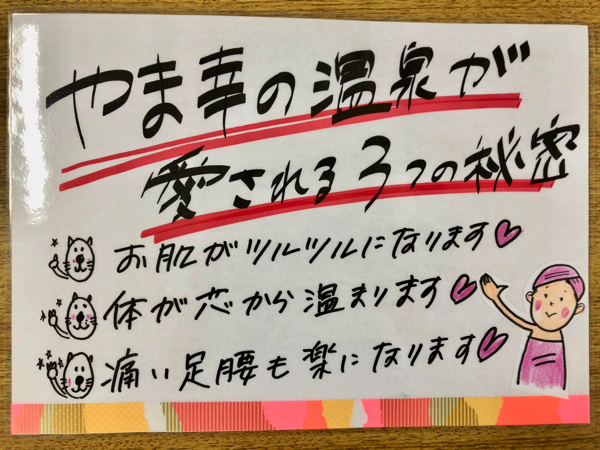 やま幸の温泉が
愛される3つの秘密
お肌がツルツルになります♡
体が芯から温まります♡
痛い足腰も楽になります♡